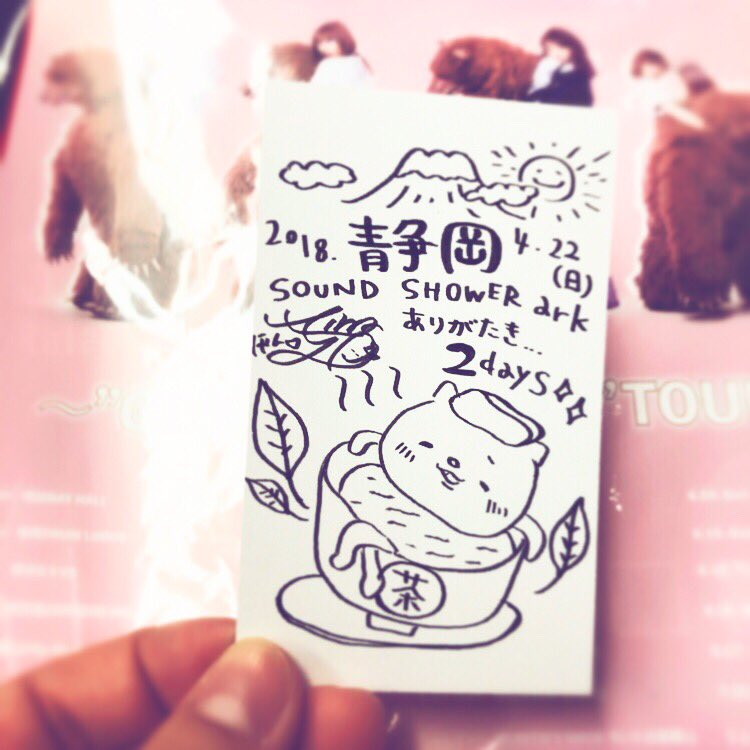 2018. 静岡 4.22
(日)
SOUND SHOWER ark
ありがたき...
2days
茶
TOU